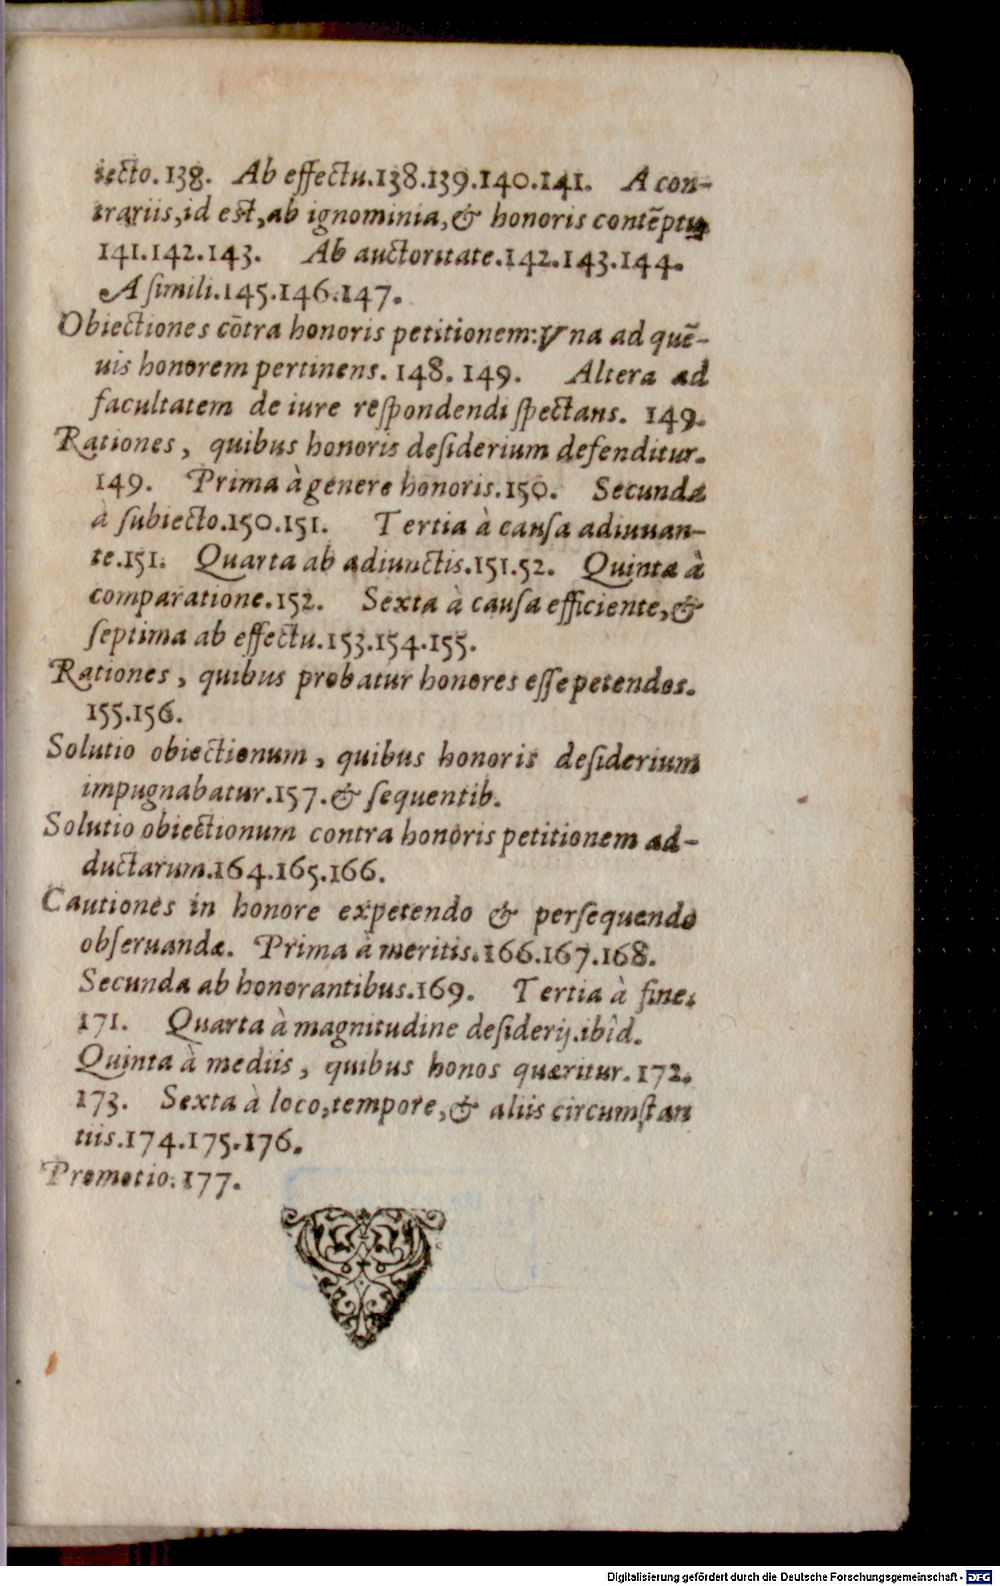 iecto. 138. Ab effectu. 138.139.140.141. A con-
trariis, id est, ab ignominia, & honoris contēptu
141.142.143. Ab auctoritate. 142.143.144.
A simili. 145.146.147.
Obiectiones cōtra honoris petitionem: Vna ad quē-
uis honorem pertinens. 148. 149. Altera ad
facultatem de iure respondendi spectans. 149.
Rationes, quibus honoris desiderium defenditur.
149. Prima à genere honoris. 150. Secunda
à subiecto. 150.151. Tertia à causa adiuuan-
te. 151. Quarta ab adiunctis. 151.52. Quinta à
comparatione. 152. Sexta à causa efficiente, &
septima ab effectu. 153.154.155.
Rationes, quibus probatur honores esse petendos.
155.156.
Solutio obiectionum, quibus honoris desiderium
impugnabatur. 157. & sequentib.
Solutio obiectionum contra honoris petitionem ad-
ductarum. 164.165.166.
Cautiones in honore expetendo & persequendo
obseruandæ. Prima à meritis. 166.167.168.
Secunda ab honorantibus. 169. Tertia à fine.
171. Quarta à magnitudine desiderij. ibîd.
Quinta à mediis, quibus honos quæritur. 172.
173. Sexta à loco, tempore, & aliis circumstan
tiis. 174.175.176.
Promotio. 177.
Digitalisierung gefördert durch die Deutsche Forschungsgemeinschaft - DFG